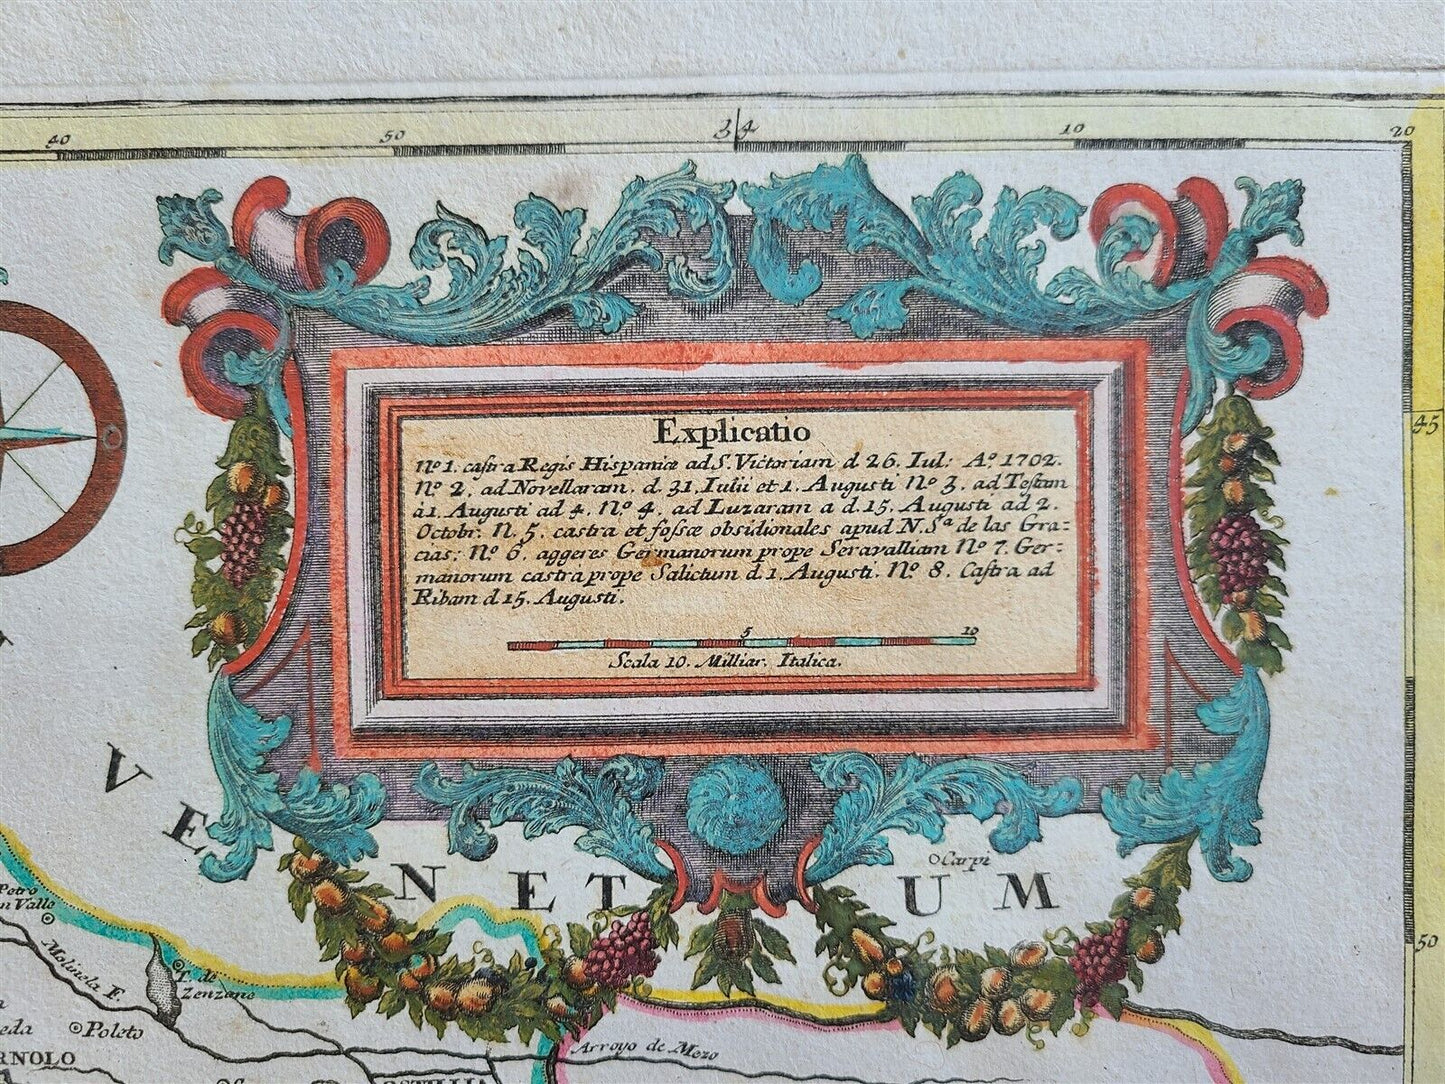 40 50 34 10 20
Explicatio
Nº1. castra Regis Hispaniæ ad S. Victoriam d 26. Iul: Aº. 1702.
Nº 2. ad Novellaram. d. 31. Iulii et 1. Augusti Nº 3. ad Testam
à1. Augusti ad 4. Nº 4. ad Luzaram a d. 15. Augusti ad 2.
Octobr: N. 5. castra et fossæ obsidionales apud N. Sª de las Gra=
cias: Nº 6. aggeres Germanorum prope Seravalliam Nº 7. Ger=
manorum castra prope Salictum d. 1. Augusti. Nº 8. Castra ad
Ribam d 15. Augusti.
5 10
Scala 10. Milliar. Italica.
45
50
VENETUM
Carpi
Petro
n Valle
Molinela F.
Zenzano
Poleto
RNOLO
Arroyo de Mezo